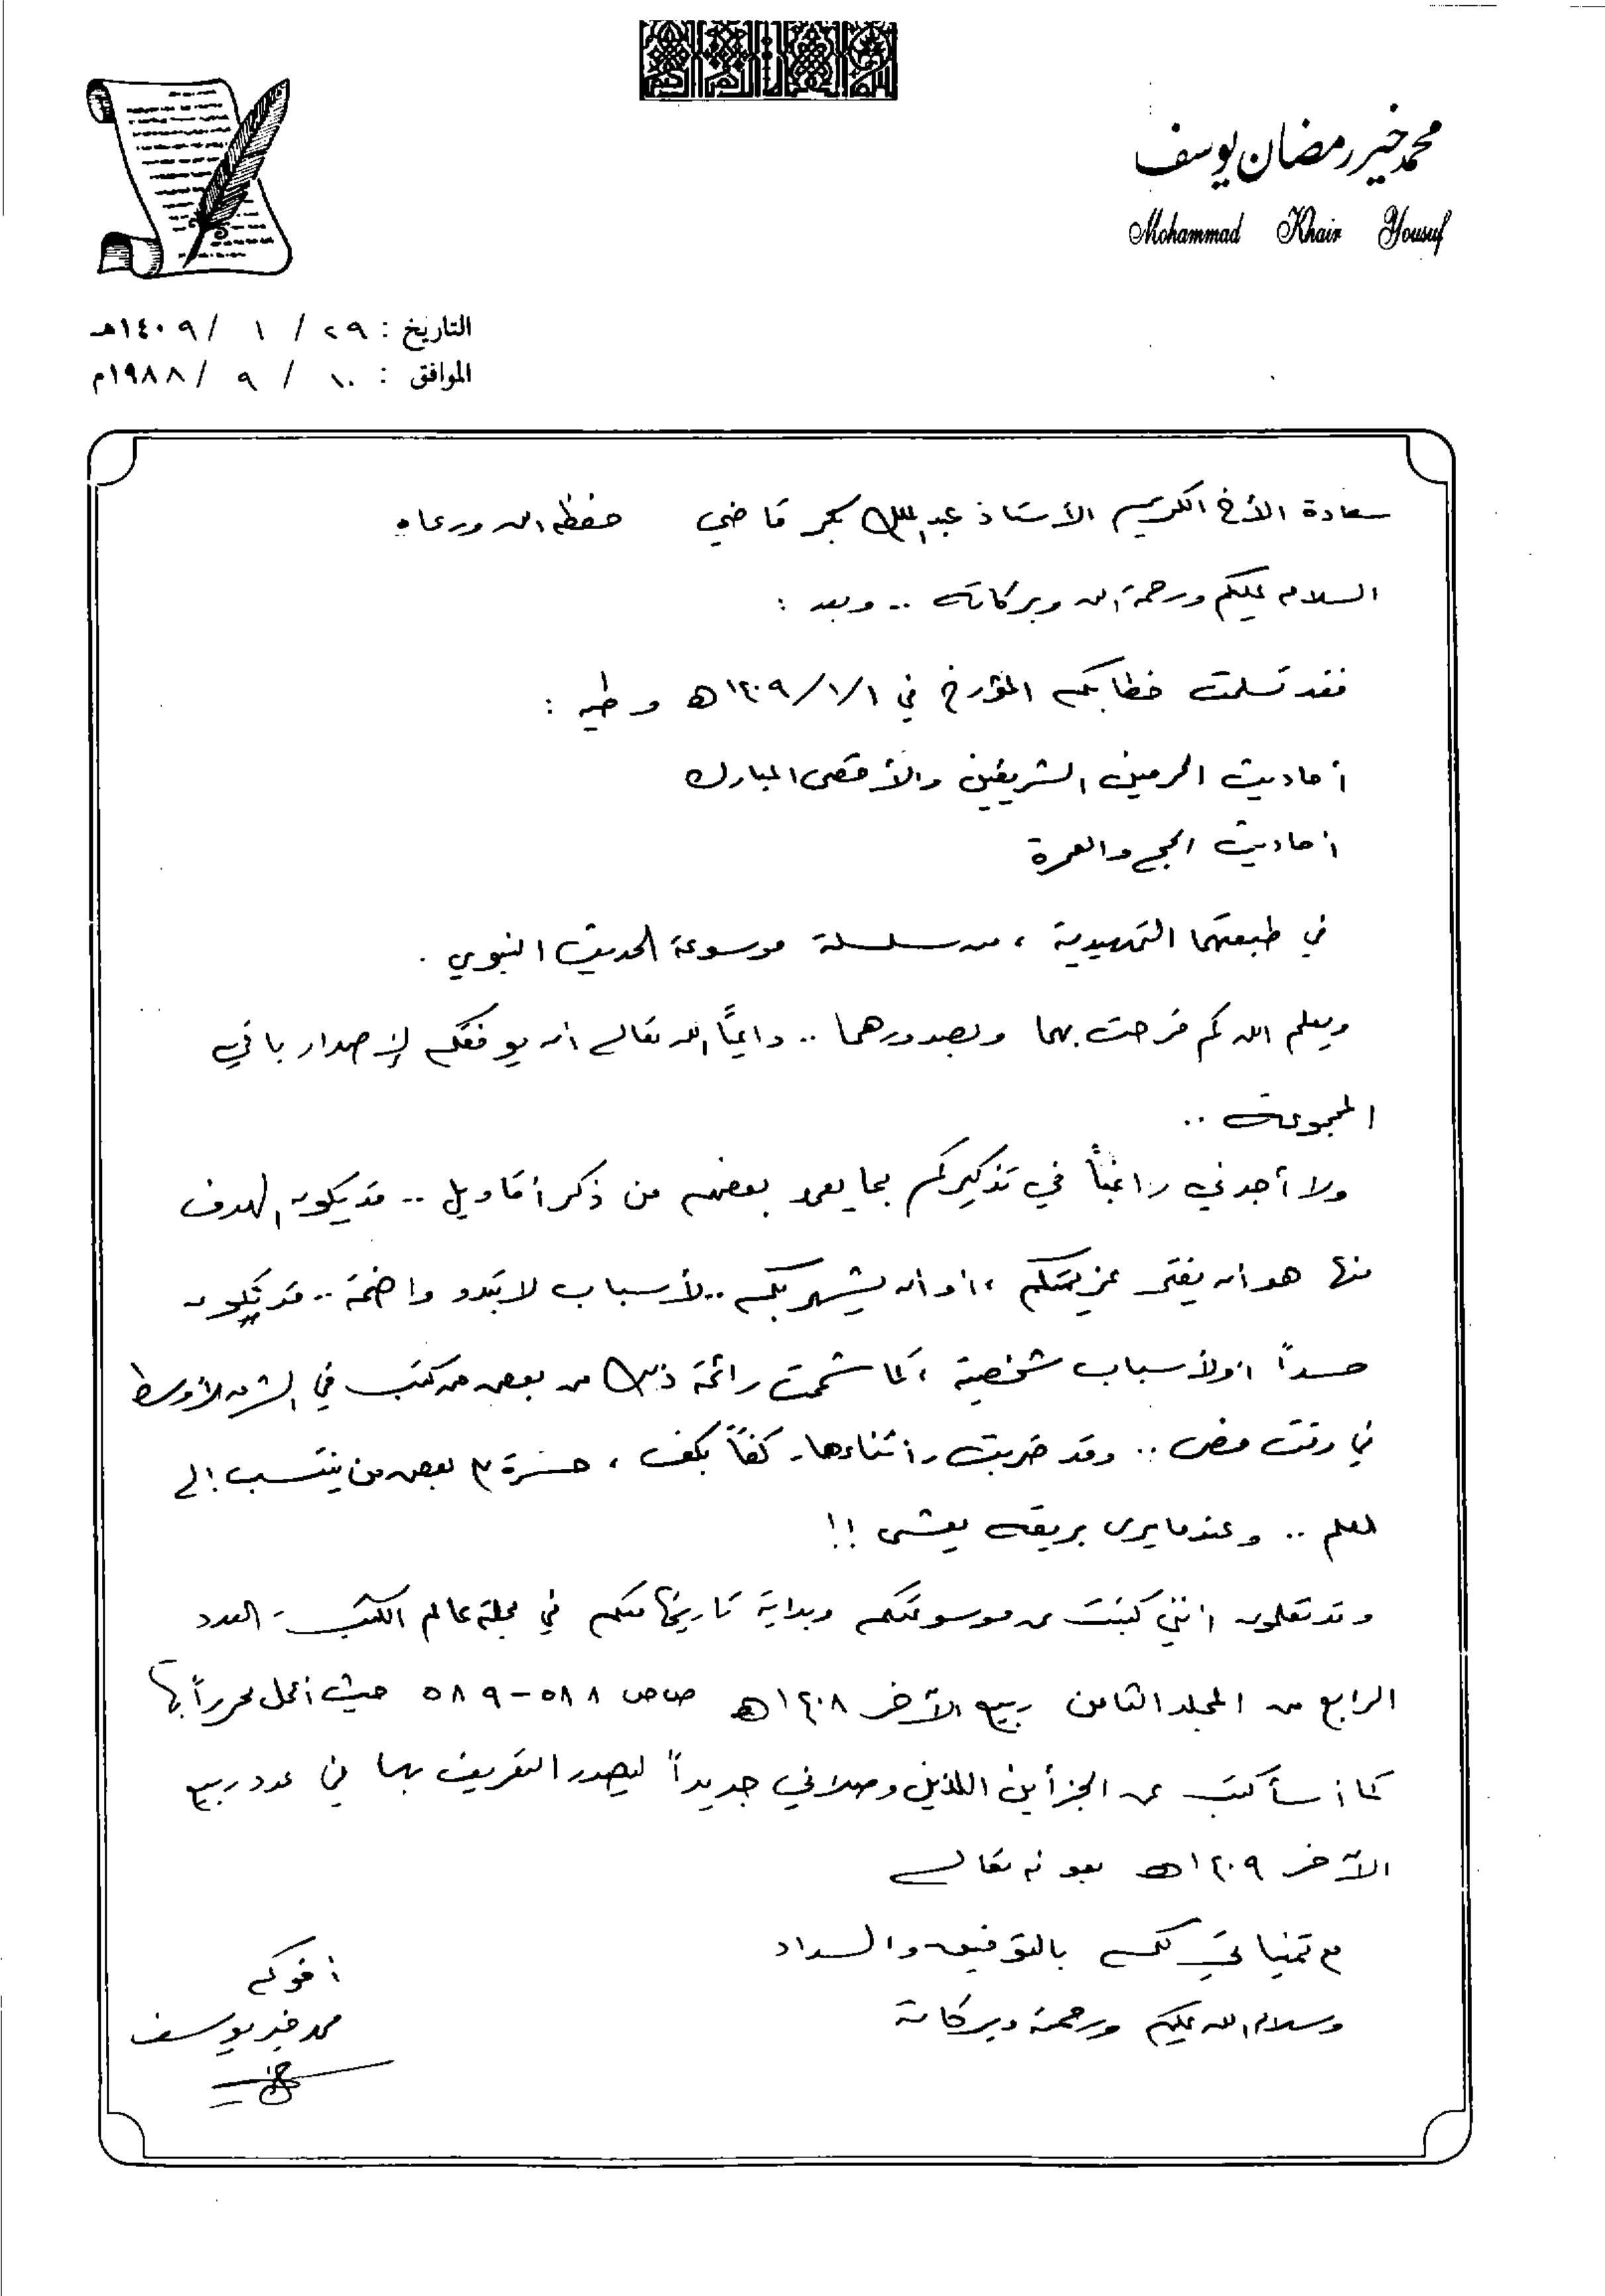 محمد خير رمضان يوسف
Mohammad Khair Yousuf
التاريخ : ٢٩ / ١ / ١٤٠٩هـ
الموافق : ١٠ / ٩ / ١٩٨٨م
سعادة الأخ الكريم الأستاذ عبدالملك بكر قاضي حفظه الله ورعاه
السلام عليكم ورحمة الله وبركاته .. وبعد :
فقد تسلمت خطابكم المؤرخ في ١/١/١٤٠٩هـ وطيه :
أحاديث الحرمين الشريفين والأقصى المبارك
أحاديث الحج والعمرة
في طبعتهما التمهيدية ، من سلسلة موسوعة الحديث النبوي .
ويعلم الله كم فرحت بهما وبصدورهما .. داعياً الله تعالى أن يوفقكم لإصدار باقي
المجموعة ..
ولا أجدني راغباً في تذكيركم بما يعمد بعضهم من ذكر أقاويل .. قد يكون الهدف
منها هو أن يفتّ عزيمتكم ، أو أن يشهر بكم .. لأسباب لا تبدو واضحة .. قد تكون
حسداً أو لأسباب شخصية ، كما شممت رائحة ذلك من بعض من كتب في الشرق الأوسط
في وقت مضى .. وقد ضربت - أثناءها - كفاً بكف ، حسرة على بعض من ينتسب إلى
العلم .. وعندما يرى بريقه يعشى !!
وقد تعلمون أنني كتبت عن موسوعتكم وبداية تاريخها منكم في مجلة عالم الكتب - العدد
الرابع من المجلد الثامن ربيع الآخر ١٤٠٨هـ ص ص ٥٨٨-٥٨٩ حيث أعمل محرراً بها
كما أنني سأكتب عن الجزأين اللذين وصلاني جديداً ليصدر التعريف بهما في عدد ربيع
الآخر ١٤٠٩هـ بعونه تعالى
مع تمنياتي لكم بالتوفيق والسداد
وسلام الله عليكم ورحمته وبركاته
أخوكم
محمد خير يوسف